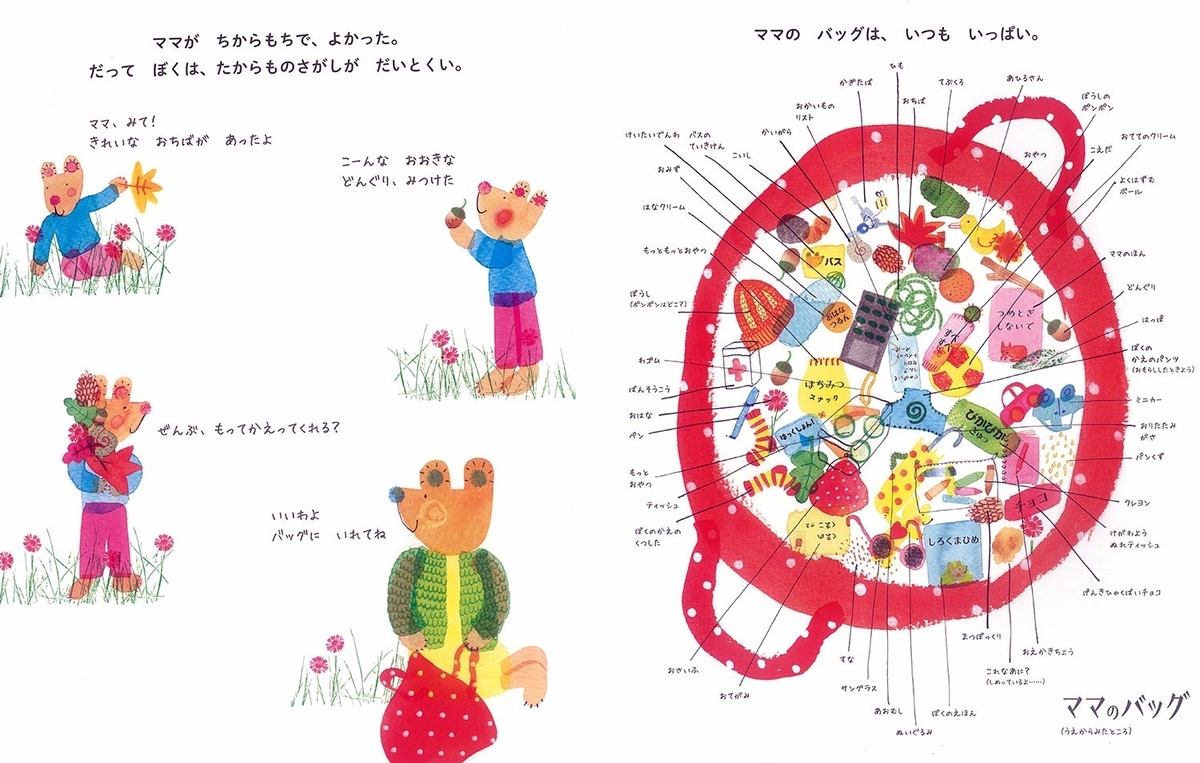 ママが ちからもちで、よかった。
だって ぼくは、たからものさがしが だいとくい。
ママ、みて!
きれいな おちばが あったよ
こーんな おおきな
どんぐり、みつけた
ぜんぶ、もってかえってくれる?
いいわよ
バッグに いれてね
ママの バッグは、いつも いっぱい。
ひも
かぎたば
てぶくろ
あひるさん
おちば
ぼうしの
ポンポン
おかいもの
リスト
けいたいでんわ
バスの
ていきけん
かいがら
こいし
おててのクリーム
こえだ
おやつ
よくはずむ
ボール
おみず
はなクリーム
もっともっとおやつ
ママのほん
ぼうし
(ポンポンはどこ?)
どんぐり
はっぱ
わゴム
ぼくの
かえのパンツ
(おもらししたときよう)
ばんそうこう
ミニカー
おはな
おりたたみ
がさ
ペン
パンくず
もっと
おやつ
ティッシュ
クレヨン
ぼくのかえの
くつした
けがわよう
ぬれティッシュ
げんきひゃくばいチョコ
まつぼっくり
おえかきちょう
おさいふ
すな
これなあに?
(しめっているよ……)
おてがみ
サングラス
あおむし
ぼくのえほん
ぬいぐるみ
バス
おはな
つるん
つめとぎ
しないで
はちみつ
スナック
はっくしょん!
ぴかぴか
チョコ
しろくまひめ
ママのバッグ
(うえからみたところ)